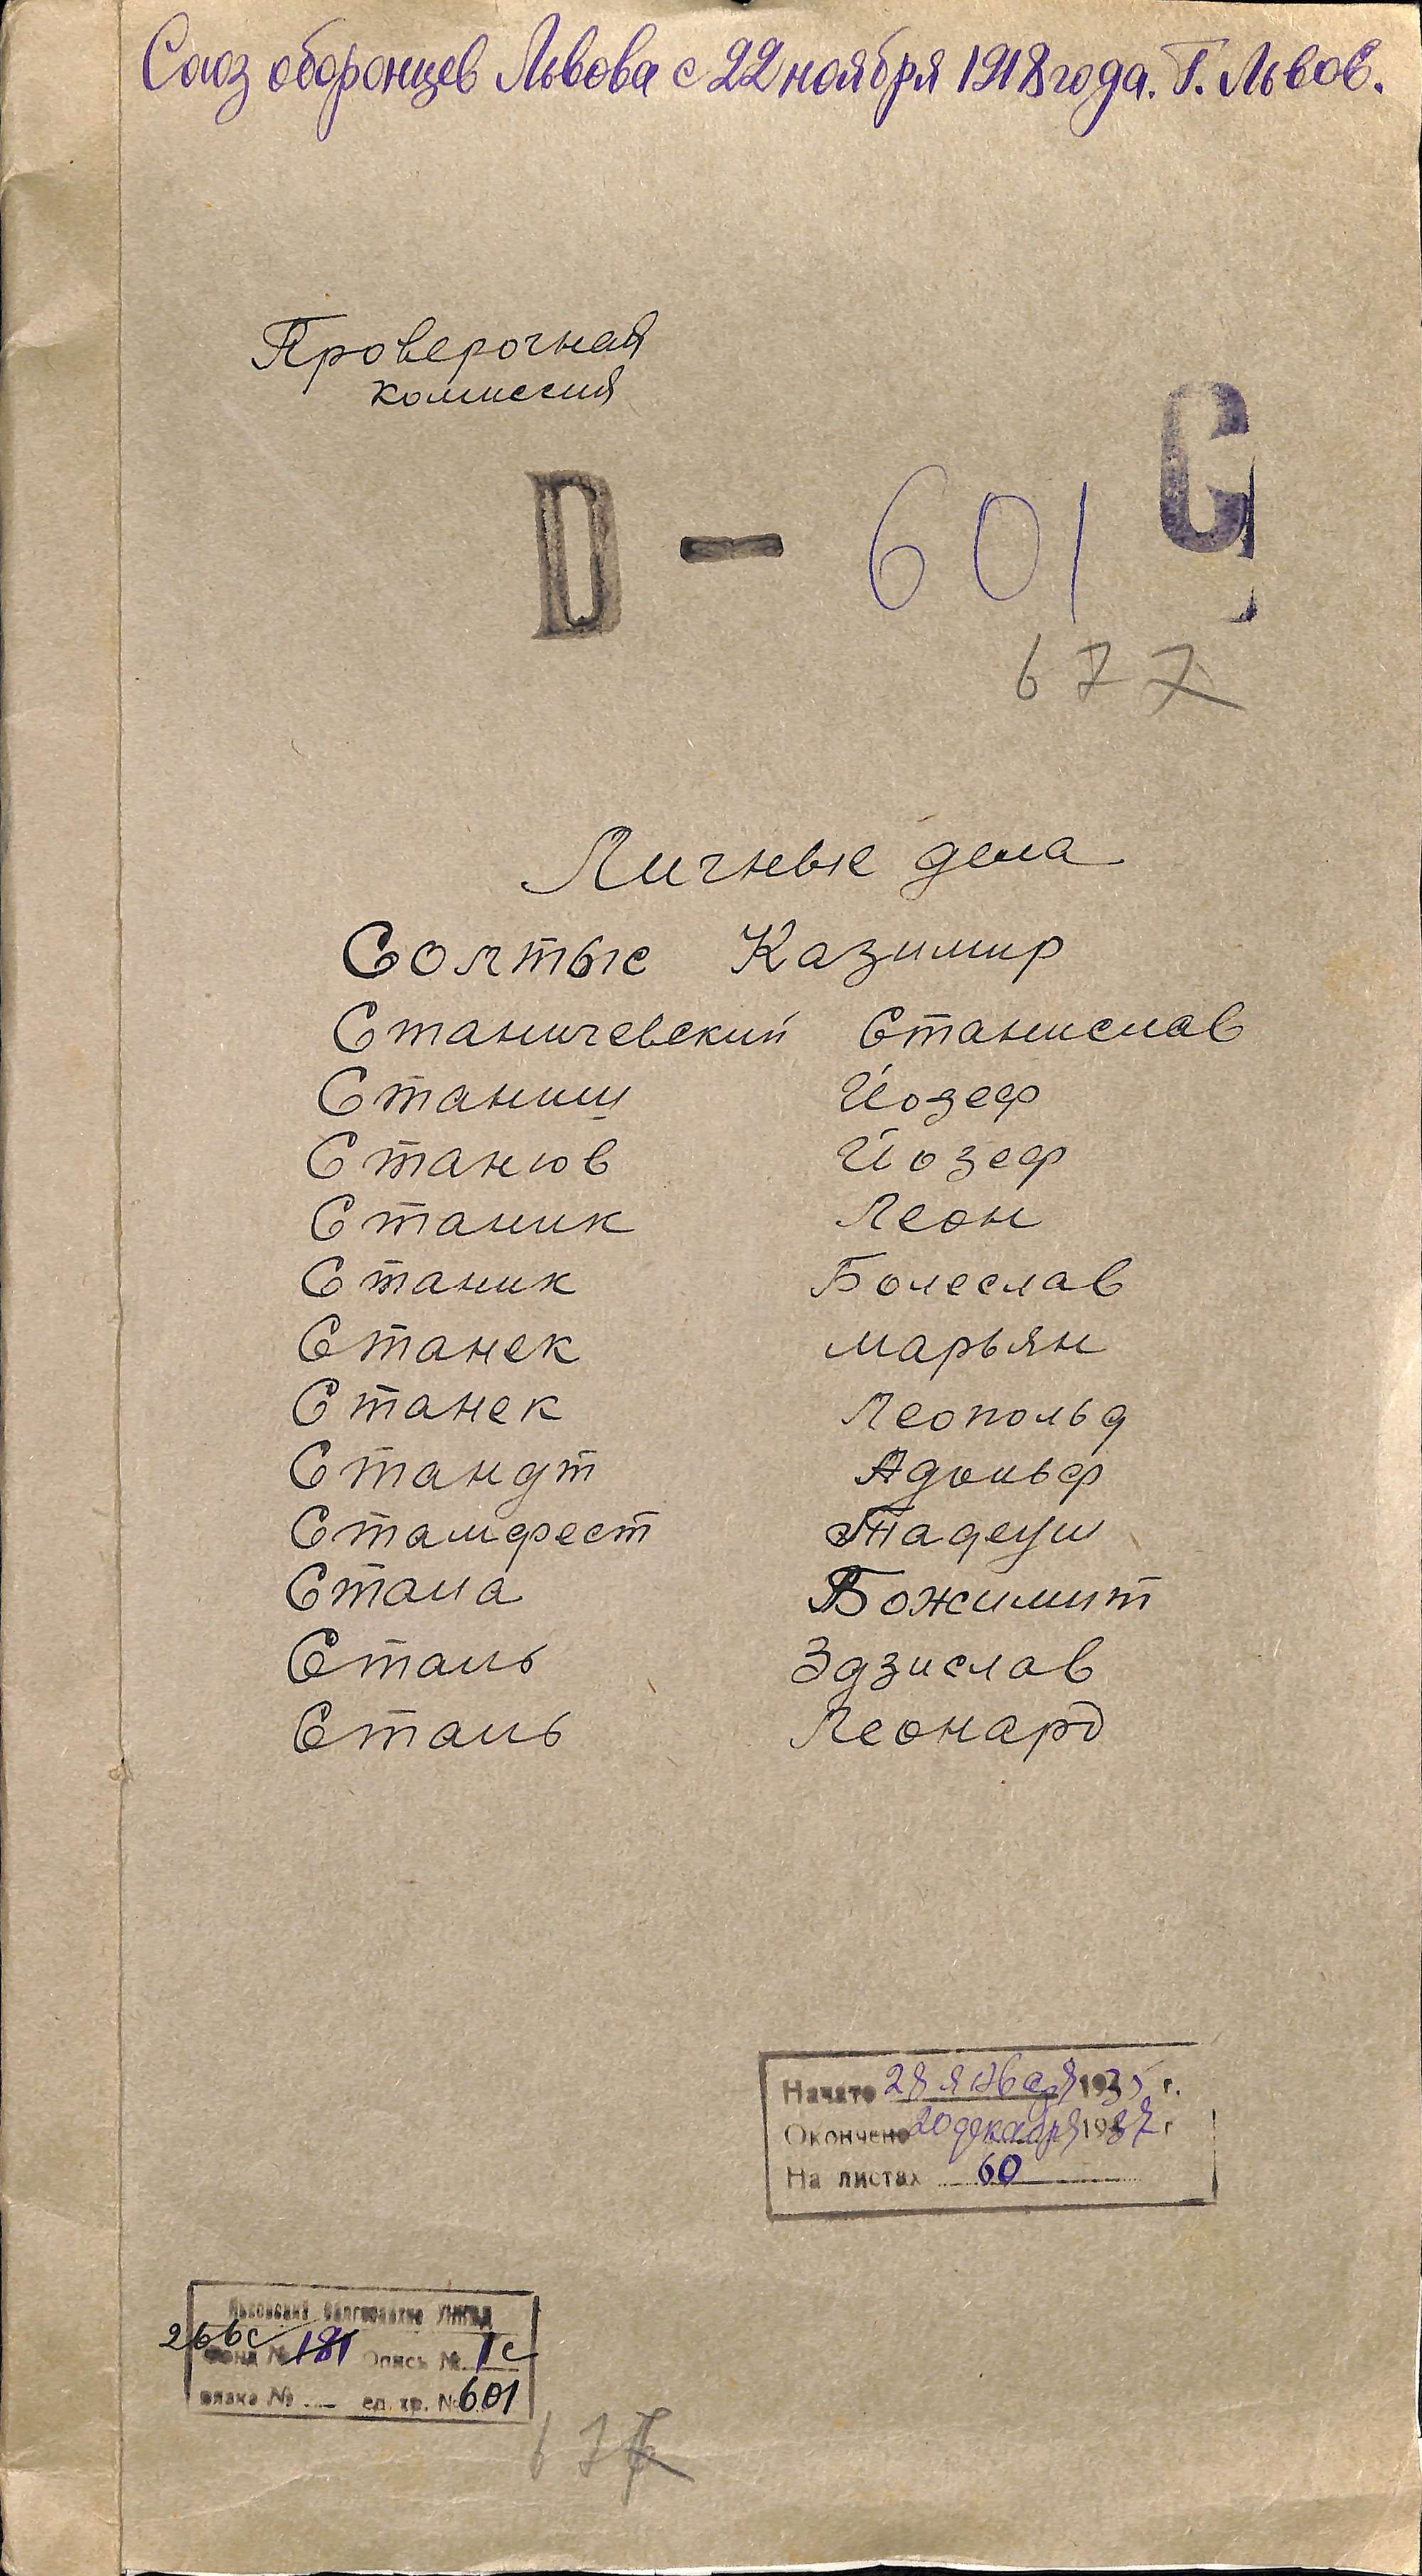 Союз оборонцев Львова с 22 ноября 1918 года. Г. Львов.
Проверочная
комиссия
С
D – 601
677
Личные дела
Солтыс Казимир
Станичевский Станислав
Станищ Йозеф
Станюв Йозеф
Станик Леон
Станик Болеслав
Станек Марьян
Станек Леопольд
Стандт Адольф
Стамфест Тадеуш
Стала Божимит
Сталь Здзислав
Сталь Леонард
Начато 28 января 1935 г.
Окончено 20 декабря 1937 г
На листах 60
Львовский облгосархив УНКВД
266с
Фонд № 181 Опись № 1с
вязка № ед. хр. № 601
677